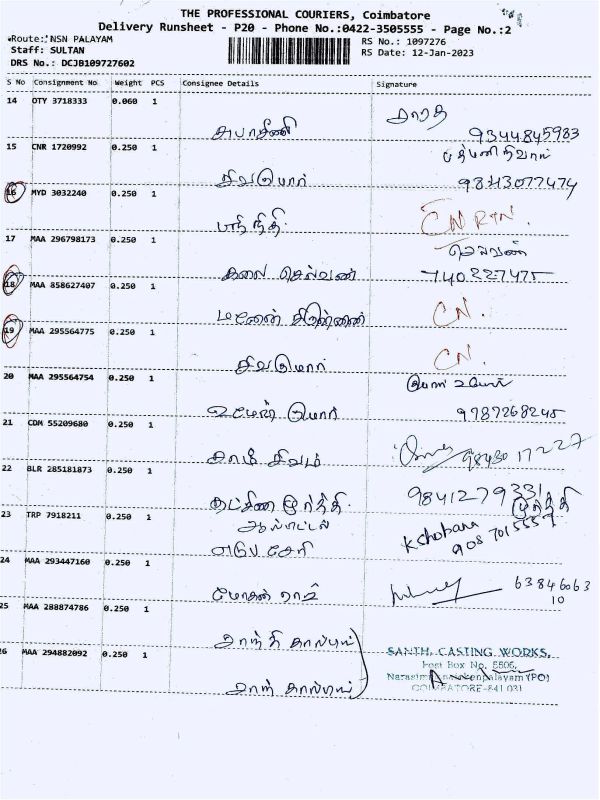 THE PROFESSIONAL COURIERS, Coimbatore
Delivery Runsheet - P20 - Phone No.:0422-3505555 - Page No.:2
Route: NSN PALAYAM
RS No.: 1097276
Staff: SULTAN
RS Date: 12-Jan-2023
DRS No.: DCJB109727602
S No Consignment No. Weight PCS Consignee Details Signature
14 OTY 3718333 0.060 1
சுபாசினி
சாரதி
9344845983
15 CNR 1720992 0.250 1
சிவகுமார்
9843077474
16 MYD 3032240 0.250 1
ஸ்ரீ நிதி
CN RTN.
17 MAA 296798173 0.250 1
கலை செல்வன்
செல்வன்
740227475
18 MAA 858627407 0.250 1
CN.
19 MAA 295564775 0.250 1
சிவகுமார்
CN.
20 MAA 295564754 0.250 1
குமார்
9787268245
21 CDM 55209680 0.250 1
காமி சிவம்
98430 17227
22 BLR 285181873 0.250 1
தட்சிண மூர்த்தி
9841279331
மூர்த்தி
23 TRP 7918211 0.250 1
ஆஸ்பிட்டல்
K Shobana
908 7015557
24 MAA 293447160 0.250 1
மோகன் ராம்
63846063
10
25 MAA 288874786 0.250 1
சாந்தி காஸ்டிங்
26 MAA 294882092 0.250 1
சாந்தி காஸ்டிங்
SANTHI CASTING WORKS,
Post Box No. 5506,
Narasimhanaickenpalayam (PO)
COIMBATORE-641 031